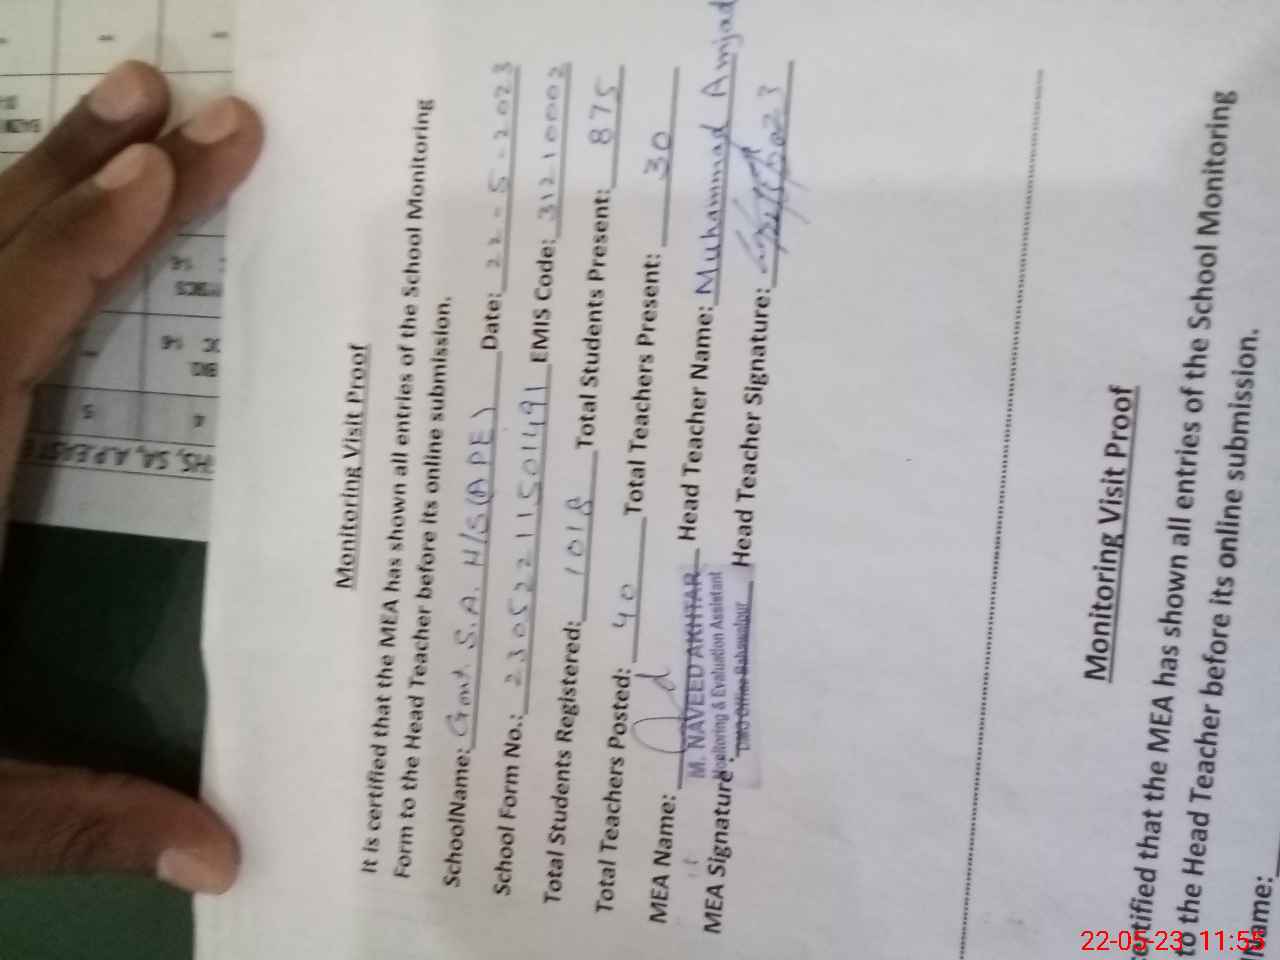 Monitoring Visit Proof
It is certified that the MEA has shown all entries of the School Monitoring
Form to the Head Teacher before its online submission.
SchoolName: Govt. S.A. H/S (APE) Date: 22-5-2023
School Form No.: 230522115501491 EMIS Code: 31210002
Total Students Registered: 1018 Total Students Present: 875
Total Teachers Posted: 40 Total Teachers Present: 30
MEA Name: M. NAVEED AKHTAR Head Teacher Name: Muhammad Amjad
Monitoring & Evaluation Assistant
MEA Signature: DMO Office Bahawalpur Head Teacher Signature:
Monitoring Visit Proof
certified that the MEA has shown all entries of the School Monitoring
to the Head Teacher before its online submission.
Name:
22-05-23 11:55